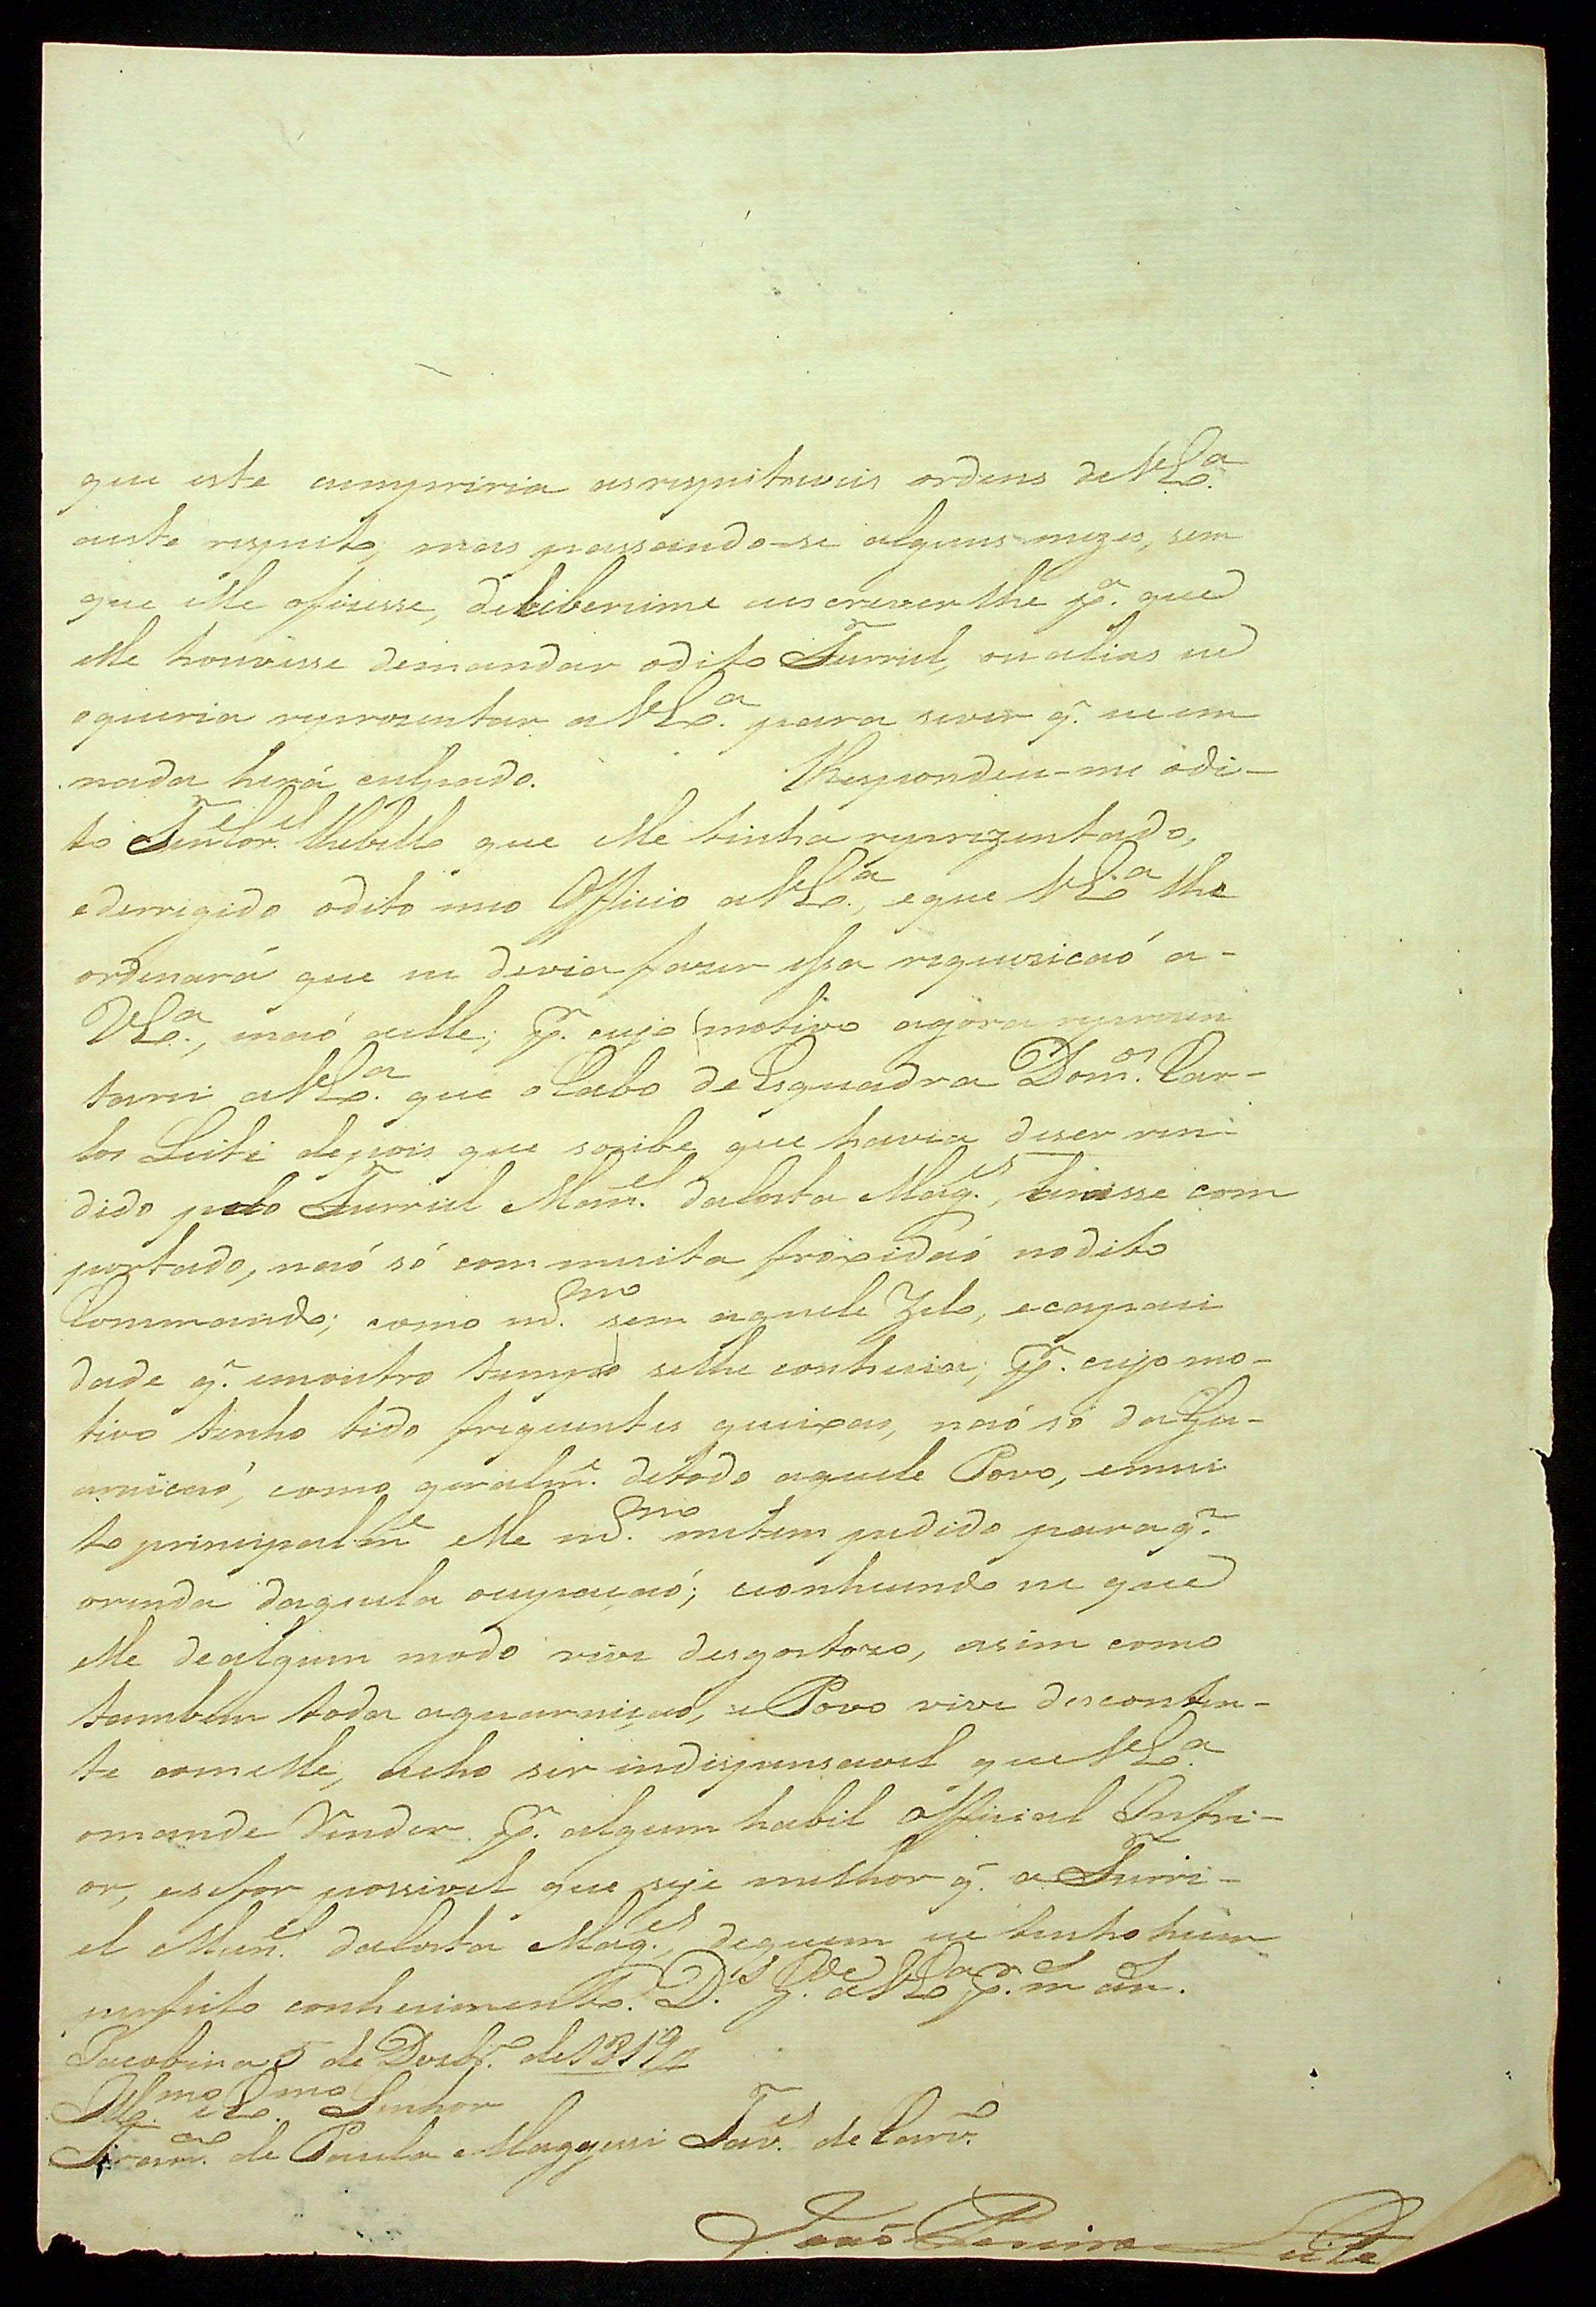 que este cumpriria as respeitaveis ordens de V Ex.ª
a este respeito; mas passando-se alguns mezes, sem
que elle ofizesse, deliberime a escreverlhe p.ª que
elle houvesse demandar odito Furriel, ou alias eu
o queria reprezentar a V Ex.ª para sever q̃. eu em
nada herá culpado. Respondeu-me odi-
to Ten.e Cor.el Rebello que elle tinha reprizentado,
ederrigido odito meo Officio a V Ex.ª, eque V Ex.ª lhe
ordenará que eu devia fazer essa requezicaó a-
V Ex.ª, enaó aelle; p.r cujo motivo agora reprezen
tarei a V Ex.ª que o Cabo de Esquadra Dom.os Car-
los Leite depois que soube que havia deser ren-
dido pelo Furriel Man.el daCosta Mag.es, tinasse com
portado, naó só com muita froxidaó nodito
Commando; como m.mo sem aquele Zelo, ecapaci
dade q̃. emoutro tempo selhe conhecia; p.r cujo mo-
tivo tenho tido frequentes queixas, naó só da Gu-
arnicaó, como geralm.e detodo aquele Povo, emui
to principalm.e elle m.mo metem pedido para q̃.
orenda daquela ocupaçaó; econhecendo eu que
elle dealgum modo vive desgostozo, asim como
tambem toda aguarniçaó, e Povo vive desconten-
te com elle, acho ser indispensavel que V Ex.ª
omande Render p.r algum habil official Infiri-
or, esefor possivel que seje milhor q̃. o Furri-
el Man.el daCosta Mag.es, dequem eu tenho hum
perfeito conhecimento. D.s g.de a V Ex.ª p.r m.s an.s
Jacobina 5 de Dezbr.o de 1819
Ill.mo e Ex.mo Senhor
Fran.co de Paula Maggesi Tav.es de Carv.o
Joaó Pereira Leite